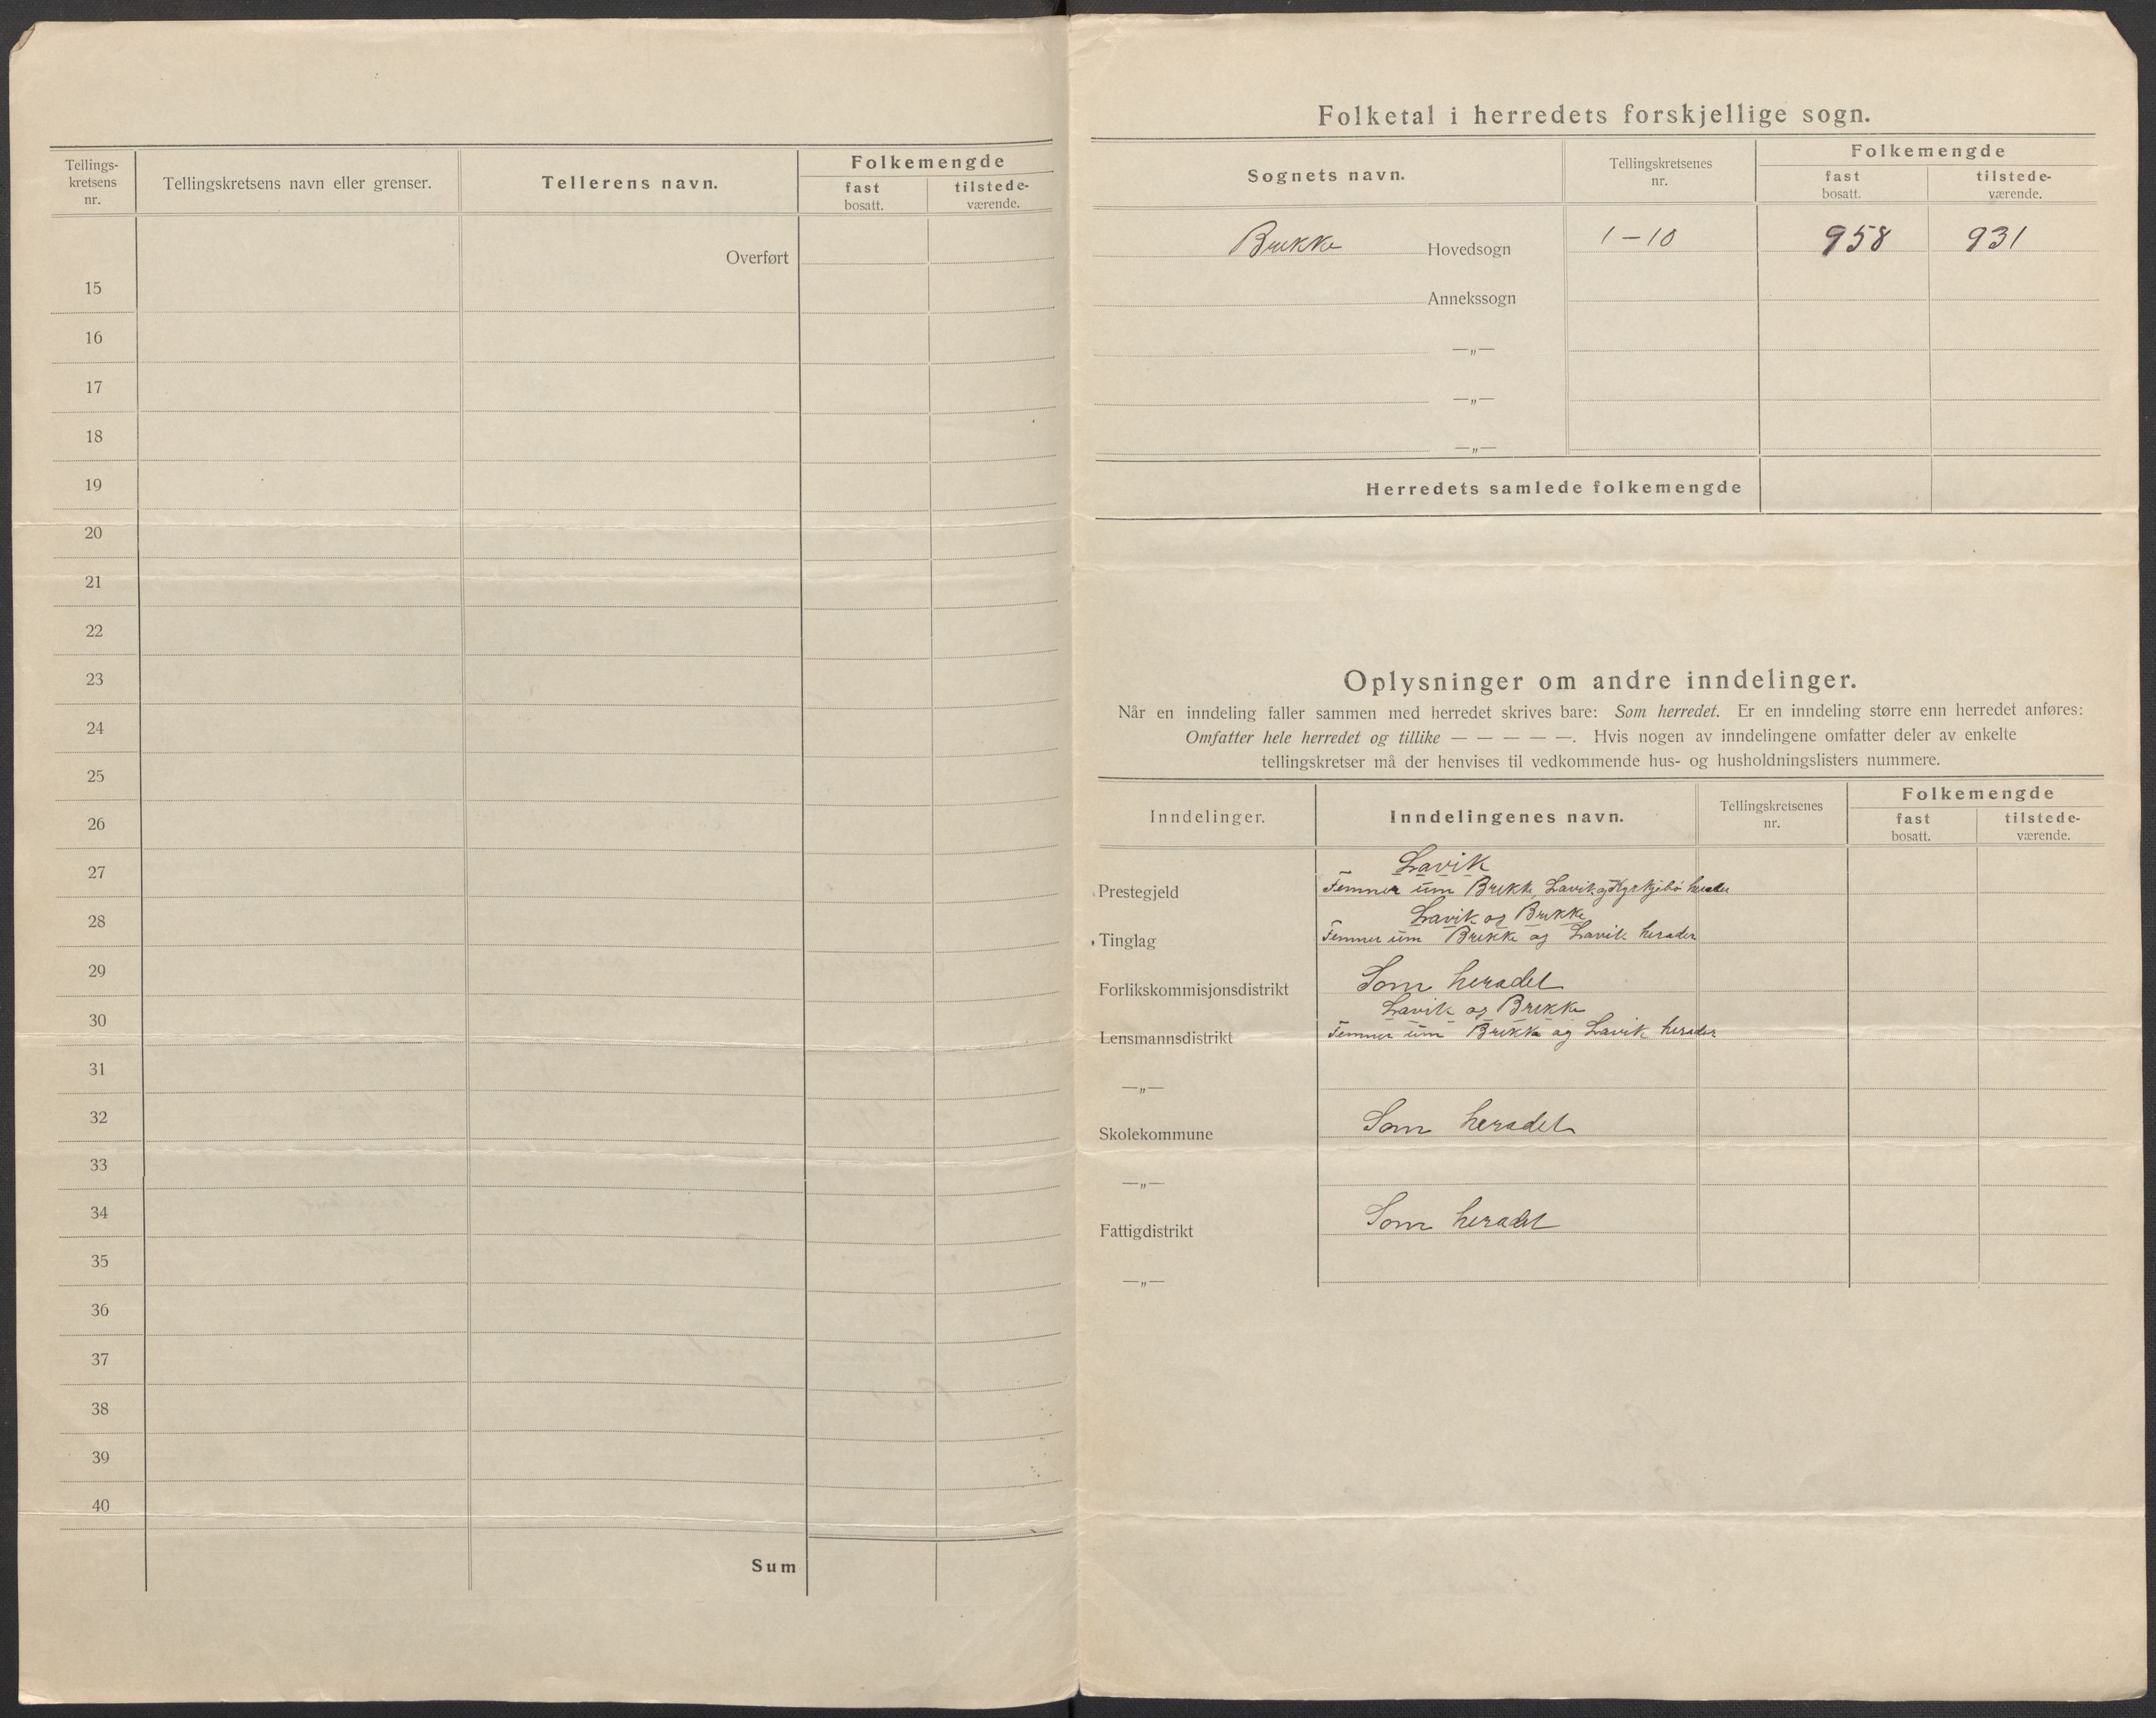 Tellings-
kretsens
nr.
Tellingskretsens navn eller grenser.
Tellerens navn.
Folkemengde
fast
bosatt.
tilstede-
værende.
Overført
15
16
17
18
19
20
21
22
23
24
25
26
27
28
29
30
31
32
33
34
35
36
37
38
39
40
Sum
Folketal i herredets forskjellige sogn.
Sognets navn.
Tellingskretsenes
nr.
Folkemengde
fast
bosatt.
tilstede-
værende.
Brekke Hovedsogn 1-10 958 931
Annekssogn
—„—
—„—
—„—
Herredets samlede folkemengde
Oplysninger om andre inndelinger.
Når en inndeling faller sammen med herredet skrives bare: Som herredet. Er en inndeling større enn herredet anføres:
Omfatter hele herredet og tillike — — — — —. Hvis nogen av inndelingene omfatter deler av enkelte
tellingskretser må der henvises til vedkommende hus- og husholdningslisters nummere.
Inndelinger.
Inndelingenes navn.
Tellingskretsenes
nr.
Folkemengde
fast
bosatt.
tilstede-
værende.
Lavik
Prestegjeld Femner um Brekke, Lavik og Kyrkjebø herader
Lavik og Brekke
Tinglag Femner um Brekke og Lavik herader
Forlikskommisjonsdistrikt Som heradet
Lavik og Brekke
Lensmannsdistrikt Femner um Brekke og Lavik herader
—„—
Skolekommune Som heradet
—„—
Fattigdistrikt Som heradet
—„—